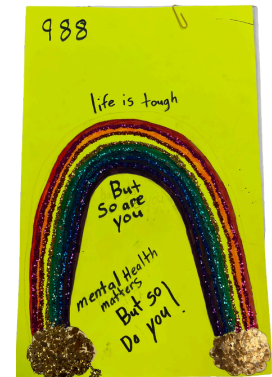 988
life is tough
But
so are
you
mental Health
matters
But so
Do you!